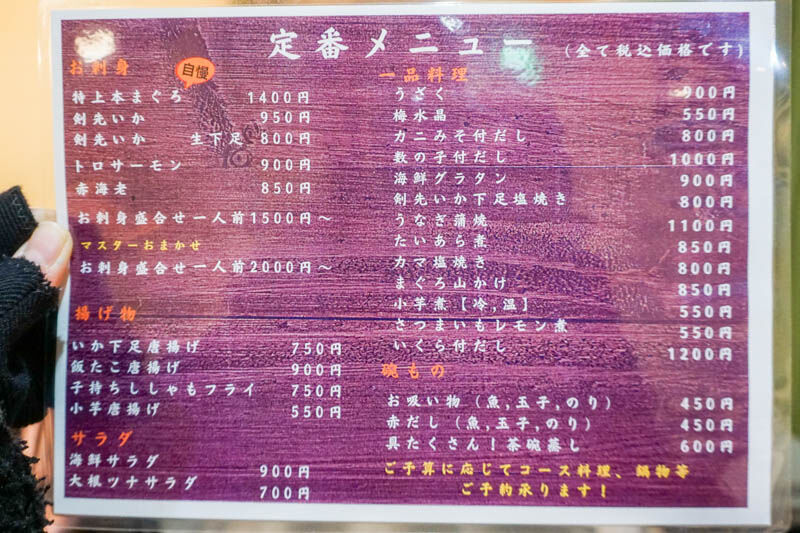 定番メニュー (全て税込価格です)
お刺身
自慢
特上本まぐろ 1400円
剣先いか 950円
剣先いか 生下足 800円
トロサーモン 900円
赤海老 850円
お刺身盛合せ一人前1500円～
マスターおまかせ
お刺身盛合せ一人前2000円～
揚げ物
いか下足唐揚げ 750円
飯たこ唐揚げ 900円
子持ちししゃもフライ 750円
小芋唐揚げ 550円
サラダ
海鮮サラダ 900円
大根ツナサラダ 700円
一品料理
うざく 900円
梅水晶 550円
カニみそ付だし 800円
数の子付だし 1000円
海鮮グラタン 900円
剣先いか下足塩焼き 800円
うなぎ蒲焼 1100円
たいあら煮 850円
カマ塩焼き 800円
まぐろ山かけ 850円
小芋煮【冷,温】 550円
さつまいもレモン煮 550円
いくら付だし 1200円
碗もの
お吸い物(魚,玉子,のり) 450円
赤だし(魚,玉子,のり) 450円
具たくさん!茶碗蒸し 600円
ご予算に応じてコース料理、鍋物等
ご予約承ります!